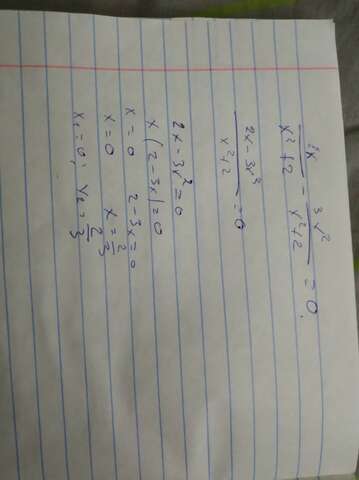 2x/x²+2 - 3x²/x²+2 = 0.
2x-3x²/x²+2 = 0
2x-3x²=0
x(2-3x)=0
x=0 2-3x=0
x=0 x=2/3
x₁=0; x₂=2/3